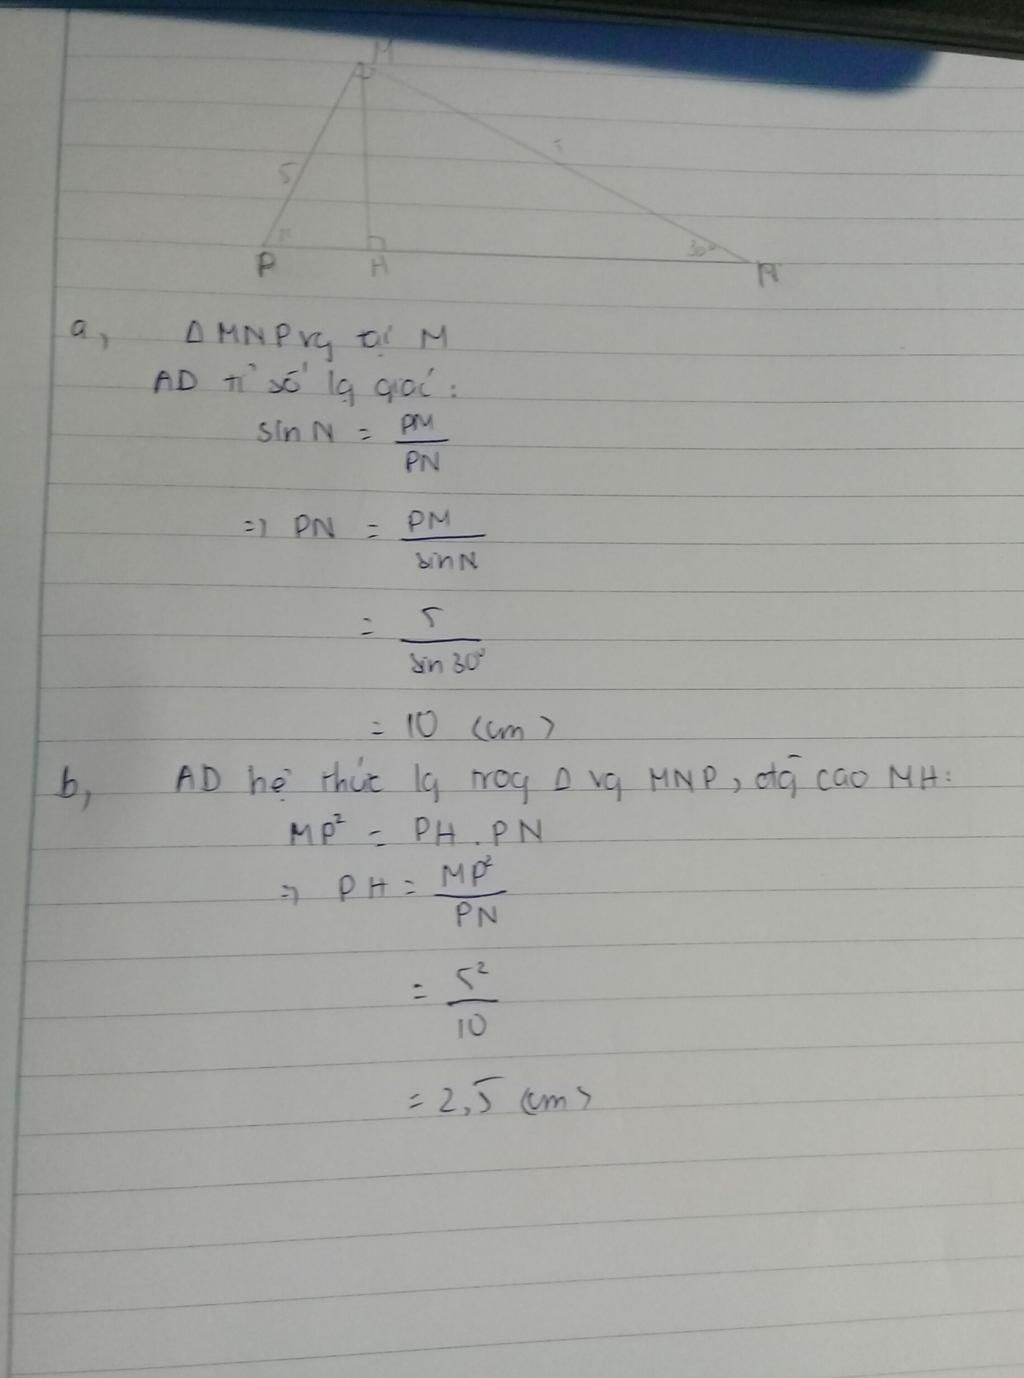 M
5
P
H
30°
N
a, Δ MNP vg tại M
AD tỉ số lg giác:
sin N = PM / PN
=) PN = PM / sin N
= 5 / sin 30°
= 10 (cm)
b, AD hệ thức lg trog Δ vg MNP, đg cao MH:
MP² = PH . PN
=) PH = MP² / PN
= 5² / 10
= 2,5 (cm)